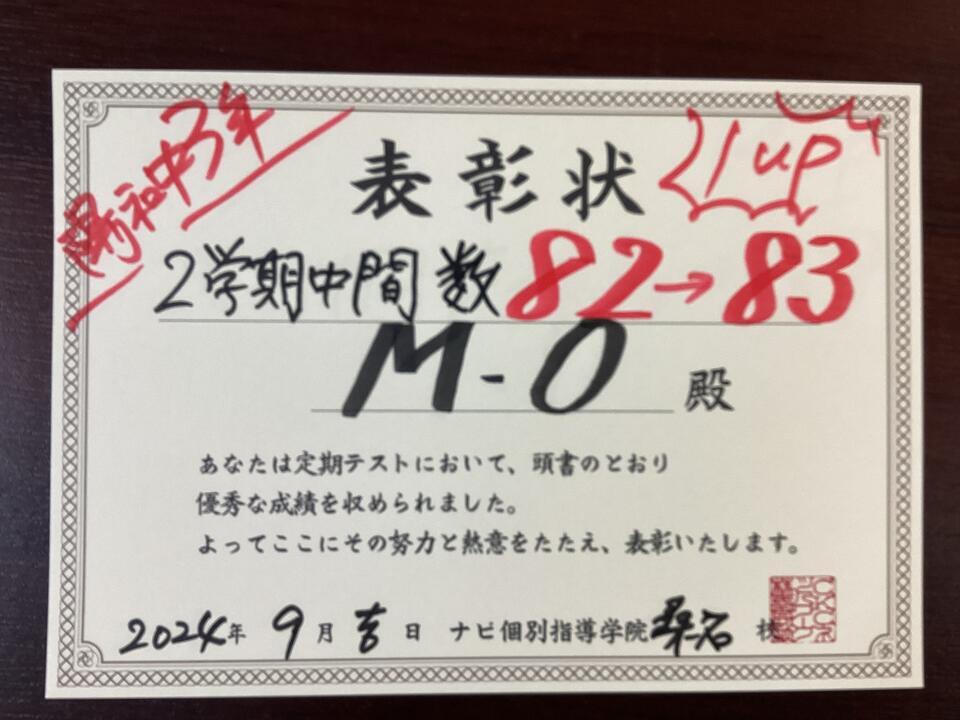 陽和中3年
表彰状
1up
2学期中間 数 82→83
M-O 殿
あなたは定期テストにおいて、頭書のとおり
優秀な成績を収められました。
よってここにその努力と熱意をたたえ、表彰いたします。
2024年 9月 吉日 ナビ個別指導学院 桑名 校